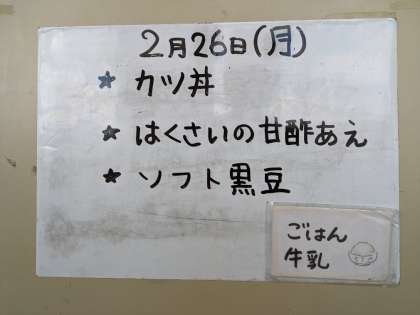 2月26日(月)
★ カツ丼
★ はくさいの甘酢あえ
★ ソフト黒豆
ごはん
牛乳